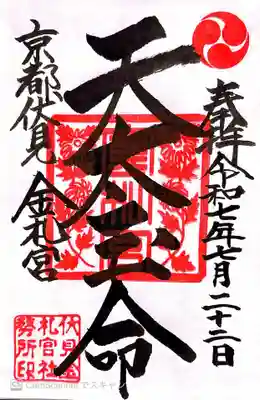 奉拝 令和七年七月二十二日
天太玉命
京都伏見 金札宮
伏見金
札宮社
務所印
CamScanner でスキャン